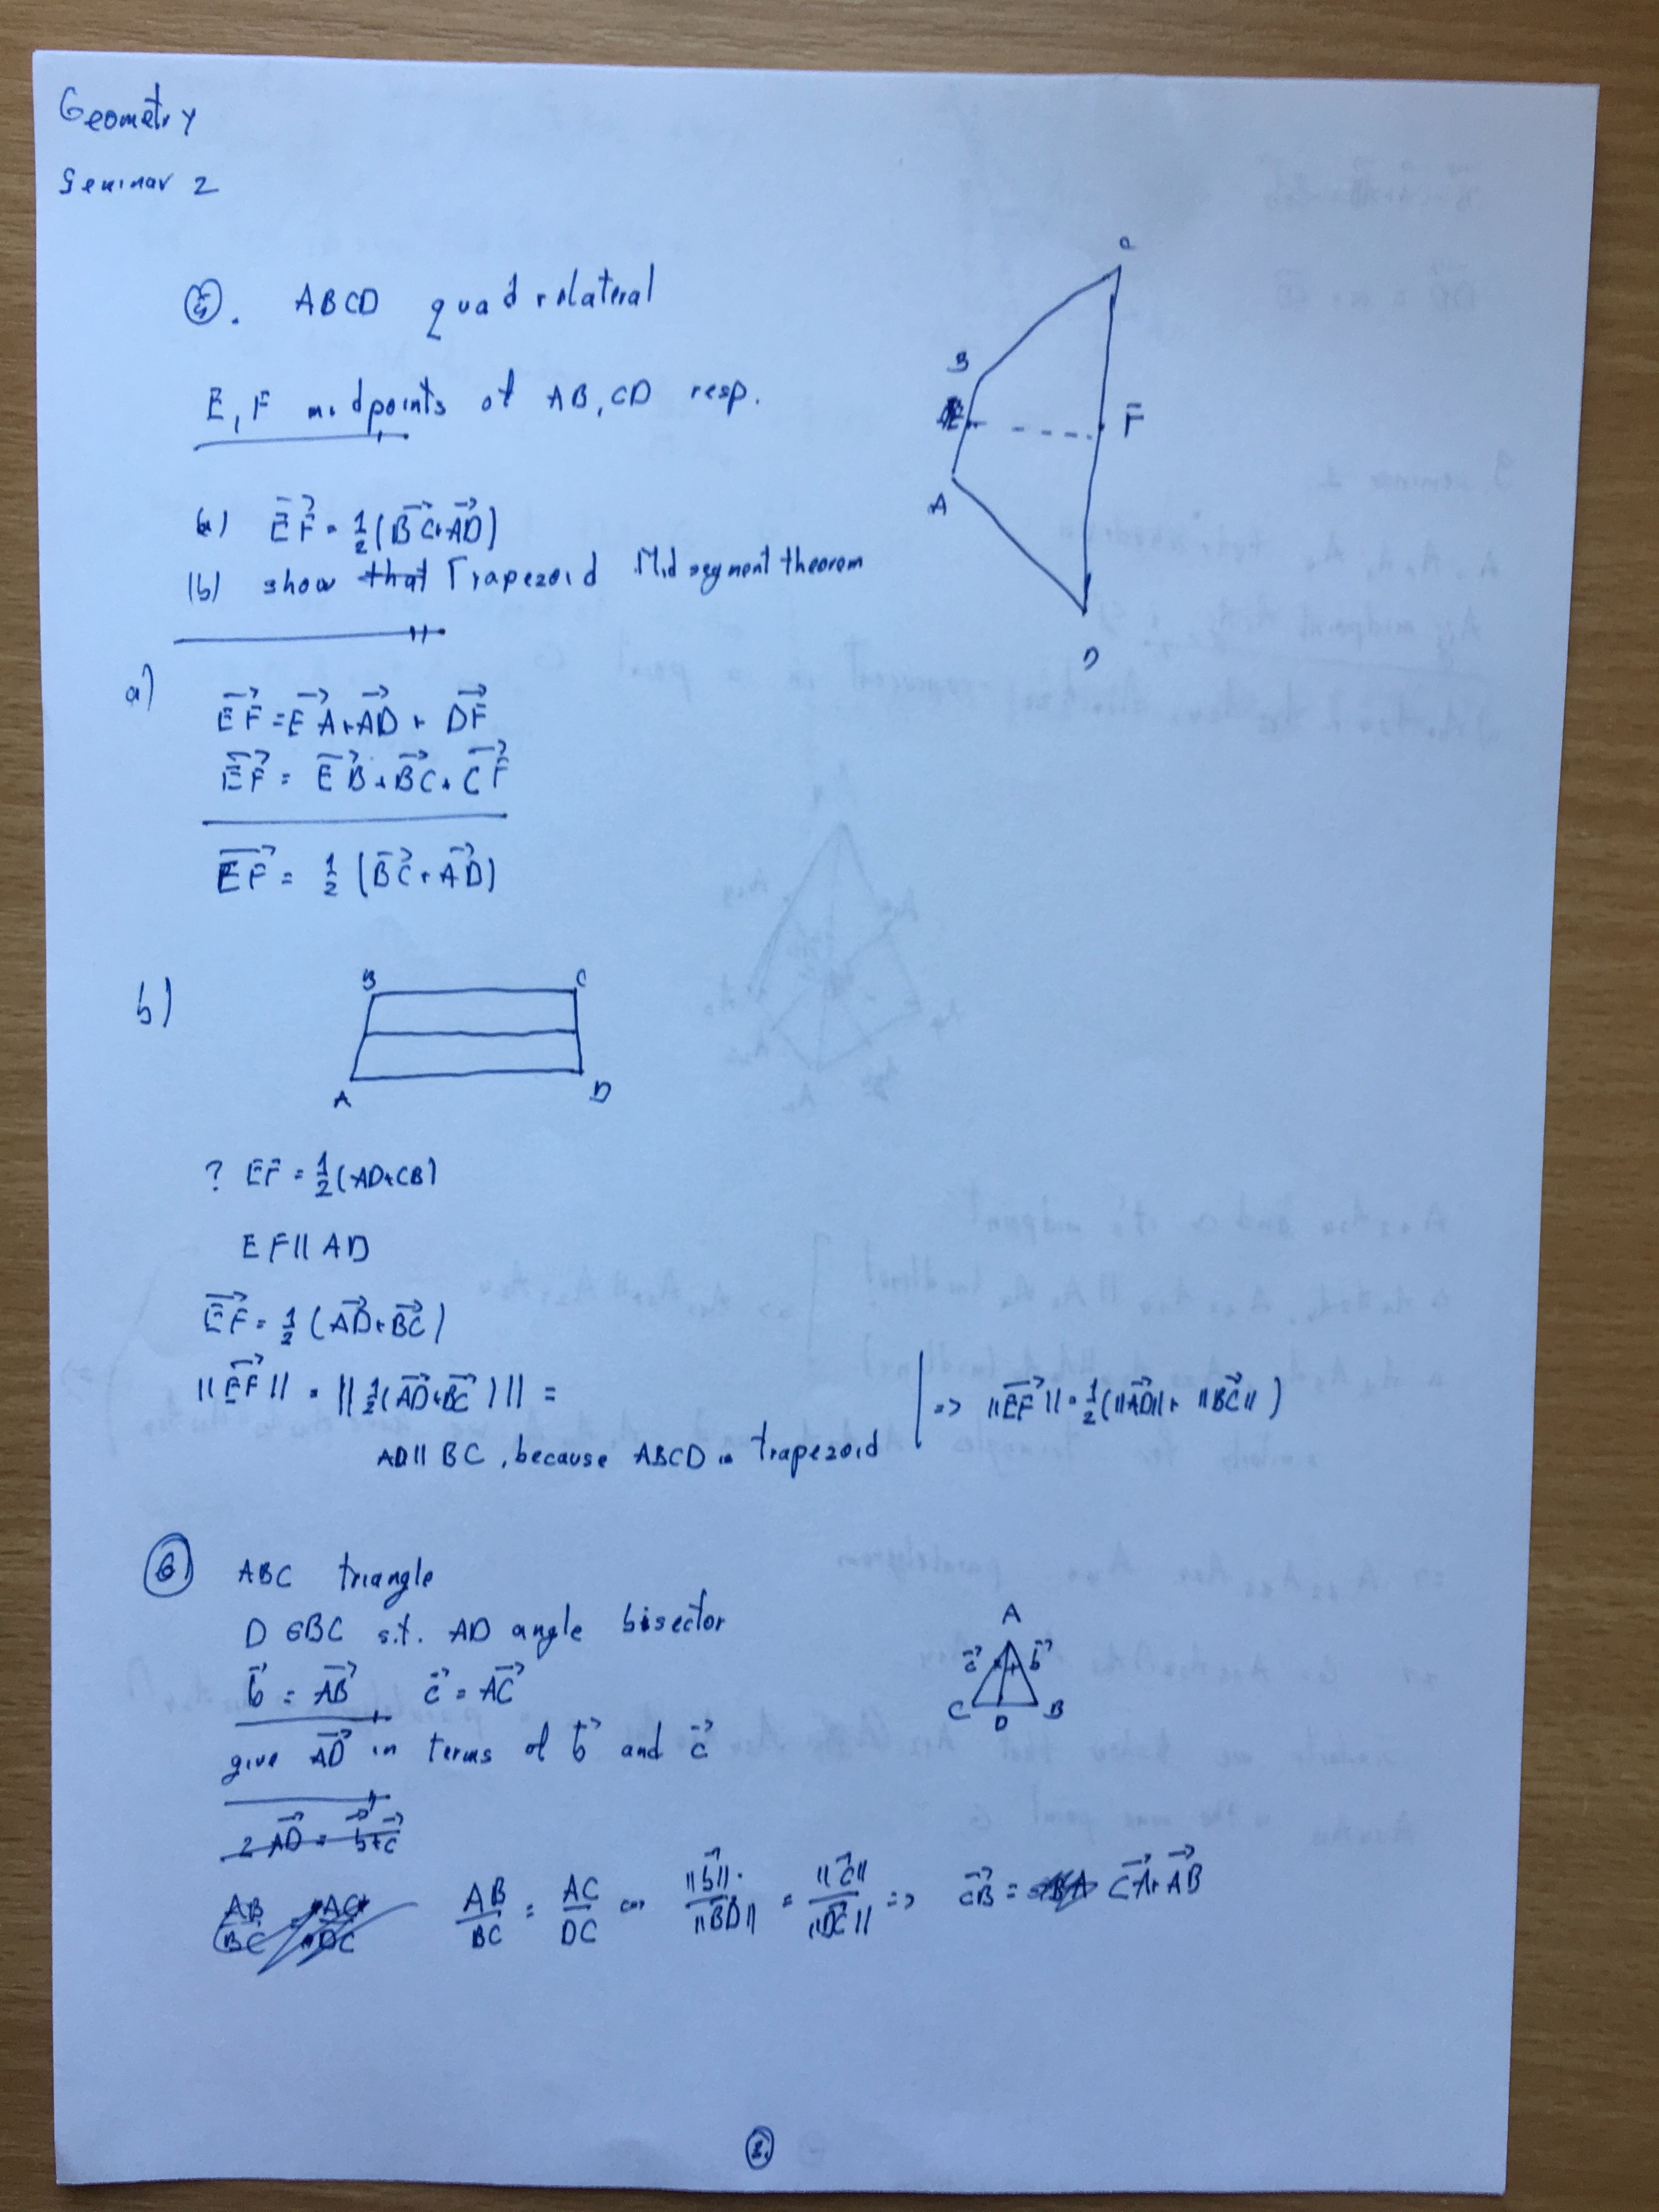 Geometry
Seminar 2
C
⑤. ABCD quadrilateral
B
E, F midpoints of AB, CD resp.
E F
A
(a) EF = 1/2 (BC + AD)
(b) show that Trapezoid Mid segment theorem
D
a)
EF = EA + AD + DF
EF = EB + BC + CF
EF = 1/2 (BC + AD)
b)
B C
A D
? EF = 1/2 (AD + CB)
EF || AD
EF = 1/2 (AD + BC)
||EF|| = ||1/2 (AD + BC)|| = => ||EF|| = 1/2 (||AD|| + ||BC||)
AD || BC, because ABCD is trapezoid
⑥ ABC triangle
D ∈ BC s.t. AD angle bisector
A
b = AB c = AC
c b
C D B
give AD in terms of b and c
2 AD = b + c
AB/BC = AC/DC AB/BC = AC/DC ||b||/||BD|| = ||c||/||DC|| => CB = CA + AB
②